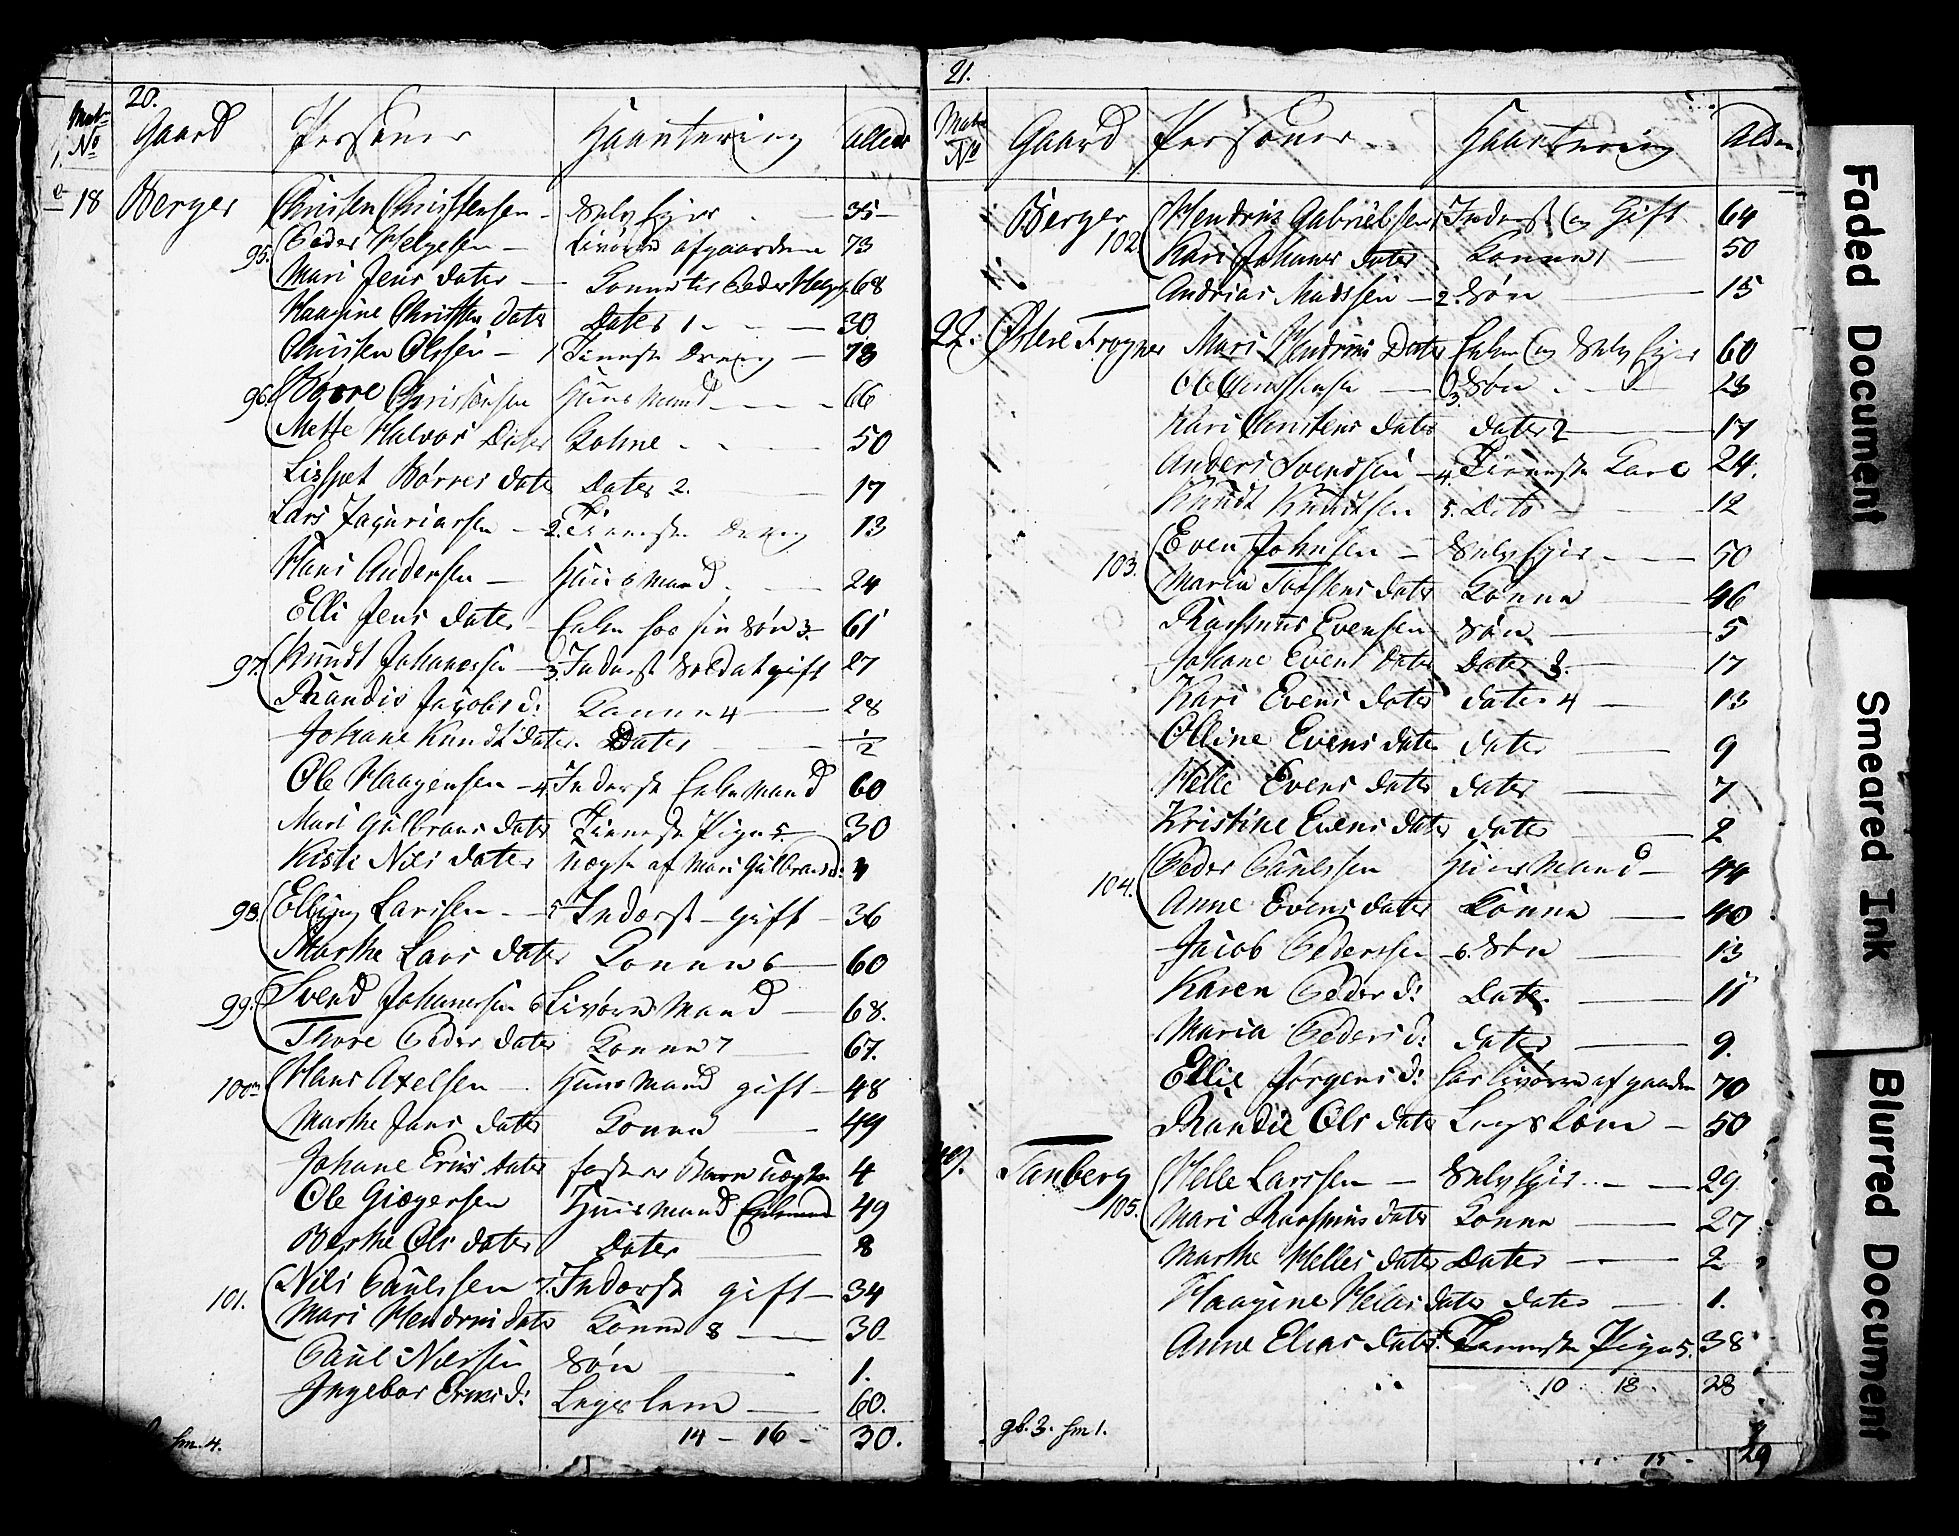 20.
Matr No Gaard Personer Haantering Alder
18 Berger Christen Christensen - Selv Ejer - 35 -
95. Peder Helgesen - Livøre af gaarden 73
Mari Jens Dater - Konne til Peder Helges. 68
Haagine Christens Dater Dater 1 - 30
Christen Olssen - 1 Tieneste Dreng - 13
96. Børre Christensen Huus Mand - 66
Mette Halvors Dater Kohne - 50
Lisspet Børres Date Dater 2. 17
Lars Zaguriassen - 2. Tieneste Dreng 13
Hans Andersen - Huus Mand 24
Elli Jens Dater - Enke hos sin Søn 3 61
97. Knudt Johannessen - 3. Inderst Soldat gift 27
Randis Jagobs d: Konne 4 - 28
Johane Knudts Dater. Dater - 1/2
Ole Haagensen - 4 Inderst Enke Mand 60
Mari Gulbrans Dater Tieneste Pige 5 30
Kisti Nils Dater Uægte af Mari Gulbrands d: 4
98. Elling Larssen - 5 Inderst - gift - 36
Marthe Lars Dater Konne 6 - 60
99. Svend Johannessen 6 Livøre Mand - 68.
Thore Peders Dater Konne 7 - 67.
100. Hans Axelsen Huus Mand gift - 48
Marthe Jans Dater Konne - 49
Johane Erics Dater foster Barn uægte 4
Ole Giøgersen Huus Mand Enkemand 49
Berthe Ols Dater Dater 8
101. Nils Paulssen 7. Inderst gift - 34
Mari Hendrics Dater Konne 8 - 30.
Paul Nilssen Søn - 1.
Ingebor Erics d: Legs Lem - 60.
14 - 16 - 30.
hm. 4.
21.
Matr No Gaard Personer Haantering Alder
Berger 102. Hendric Gabrielsen Inderst og Gift 64
Kari Johanes Dater Konne 1 - 50
Andrias Madssen - 2. Søn - 15
22. Østere Frogner Mari Hendrics Dater Enke og Selv Ejer 60
Ole Christensen - 3. Søn - 23
Kari Christens Dater Dater 2 - 17
Anders Svendsen - 4. Tieneste Karl 24.
Knudt Knudtsen 5. Dito - 12
103. Even Johnsen - Selv Ejer - 50
Maria Torstens Dater Konne - 46
Rassmus Evensen Søn - 5
Johane Evens Dater Dater 3. - 17
Kari Evens Dater Dater 4 - 13
Olline Evens Dater Dater - 9
Helle Evens Dater Dater - 7
Kristine Evens Dater Dater - 2
104. Peder Paulssen Huus Mand - 44
Anne Evens Dater Konne - 40
Jacob Pederssen - 6. Søn - 13
Karen Peders d: Dater - 11
Maria Peders d: Dater - 9.
Ellie Jørgens d: har Livøre af gaarden 70
Randie Ols Dater Legs Lem - 50
Tanberg 105. Helle Larssen - Selv Ejer - 29
Mari Rasmus Dater Konne - 27
Marthe Helles Dater Dater - 2
Haagine Helles Dater Dater - 1.
Anne Elias Dater Tieneste Pige 5. 38
10 18. 28
gb. 3. hm 1.
15 - 29
Faded Document
Smeared Ink
Blurred Document